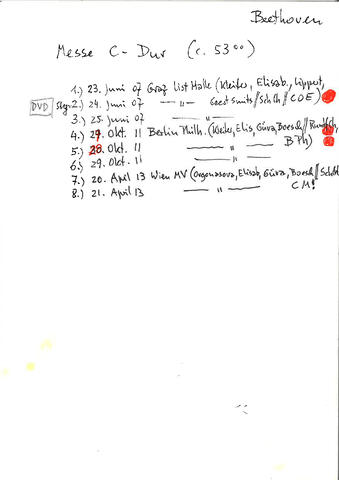 Beethoven
Messe C-Dur (c. 53⁰⁰)
1.) 23. Juni 07 Graf List Halle (Kleiter, Elisab., Lippert,
DVD 2.) 24. Juni 07 — " — Geert Smits // Sch.Ch // COE)
3.) 25. Juni 07 — " —
4.) 27. Okt. 11 Berlin Philh. (Kleiter, Elis, Güra, Boesch //
5.) 28. Okt. 11 — " — BPh)
6.) 29. Okt. 11 — " —
7.) 20. April 13 Wien MV (Orgonasova, Elisab, Güra, Boesch //
8.) 21. April 13 — " — CM!